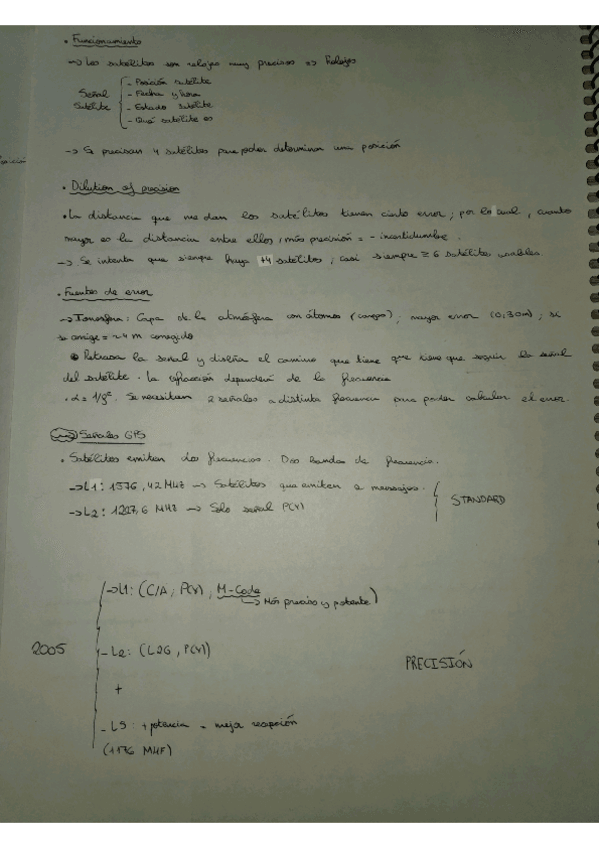 • Funcionamiento
→ Los satélites son relojes muy precisos => Relojes
Señal Satélite { - Posición satélite
- Fecha y hora
- Estado satélite
- Qué satélite es
→ Se precisan 4 satélites para poder determinar una posición
• Dilution of precision
• La distancia que me dan los satélites tienen cierto error; por lo cual, cuanto
mayor es la distancia entre ellos, más precisión = - incertidumbre.
→ Se intenta que siempre haya +4 satélites, casi siempre ≥ 6 satélites usables.
• Fuentes de error
→ Ionosfera: Capa de la atmósfera con átomos (carga); mayor error (0,30m), si
se corrige = ~4 m corregido
• Retrasa la señal y diseña el camino que tiene que tiene que seguir la señal
del satélite. La refracción dependerá de la frecuencia
• α = 1/f². Se necesitan 2 señales a distinta frecuencia para poder calcular el error.
Señales GPS
• Satélites emiten dos frecuencias. Dos bandas de frecuencia.
→ L1: 1576,42 MHz → Satélites que emiten mensajes.
→ L2: 1227,6 MHz → Solo señal P(Y)
STANDARD
→ L1: (C/A, P(Y), M-Code)
→ Más preciso y potente
2005
- L2: (L2G, P(Y))
PRECISIÓN
+
- L5: + potencia - mejor recepción
(1176 MHF)